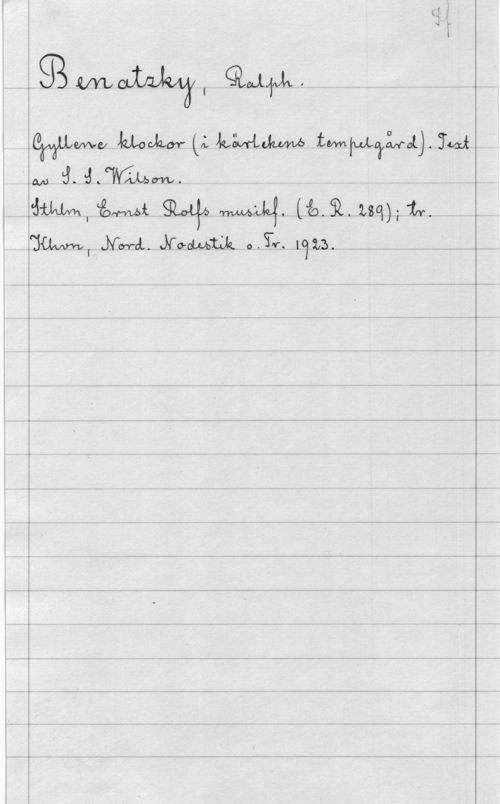 Sf
Benatzky, Ralph.
Gyllene klockor (i kärlekens tempelgård). Text
av S. S. Wilson.
Sthlm, Ernst Rolfs musikf. (E. R. 289); tr.
Khvn, Nord. Nodestik o. Tr. 1923.